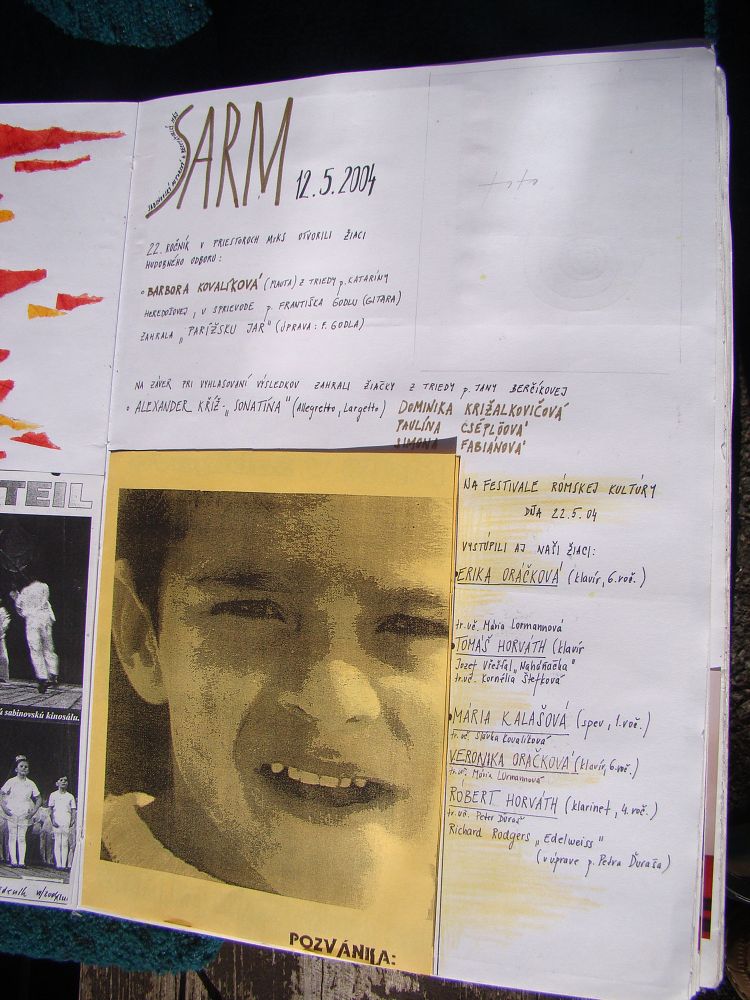 SARM
12.5.2004
22. ROČNÍK V PRIESTOROCH MsKS OTVORILI ŽIACI
HUDOBNÉHO ODBORU:
BARBORA KOVALÍKOVÁ (FLAUTA) Z TRIEDY p. KATARÍNY
HEREDOŠOVEJ, V SPRIEVODE p. FRANTIŠKA GODLU (GITARA)
ZAHRALA „PARÍŽSKU JAR" (ÚPRAVA: F. GODLA)
NA ZÁVER PRI VYHLASOVANÍ VÝSLEDKOV ZAHRALI ŽIAČKY Z TRIEDY p. JANY BERČÍKOVEJ
ALEXANDER KŘÍŽ - „SONATÍNA" (Allegretto, Largetto)
DOMINIKA KRIŽALKOVIČOVÁ
PAULÍNA CSÉPLÖOVÁ
SIMONA FABIÁNOVÁ
NA FESTIVALE RÓMSKEJ KULTÚRY
DŇA 22.5.04
VYSTÚPILI AJ NAŠI ŽIACI:
ERIKA ORÁČKOVÁ (klavír, 6. roč.)
tr. uč. Mária Lormannová
TOMÁŠ HORVÁTH (klavír
Jozef Vřešťal „Naháňačka"
tr. uč. Kornélia Štefková
MÁRIA KALAŠOVÁ (spev, 1. roč.)
tr. uč. Slávka Kovalíková
VERONIKA ORAČKOVÁ (klavír, 6. roč.)
tr. uč. Mária Lormannová
RÓBERT HORVÁTH (klarinet, 4. roč.)
tr. uč. Peter Ďuraš
Richard Rodgers „Edelweiss"
(v úprave p. Petra Ďuraša)
POZVÁNKA:
TEIL
sabinovskú kinosálu.